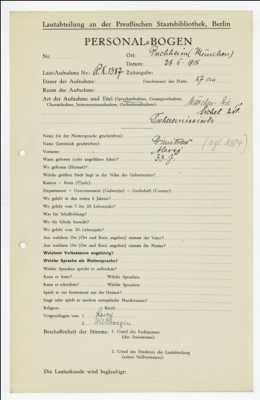 Lautabteilung an der Preußischen Staatsbibliothek, Berlin
PERSONAL-BOGEN
Nr. Ort: Puchheim (München)
Datum: 28.6.1918
Laut-Aufnahme Nr.: PK 1387 Zeitangabe:
Dauer der Aufnahme: Durchmesser der Platte: 27 cm
Raum der Aufnahme:
Art der Aufnahme und Titel (Sprechaufnahme, Gesangsaufnahme,
Choraufnahme, Instrumentenaufnahme, Orchesteraufnahme):
Name (in der Muttersprache geschrieben):
Name (lateinisch geschrieben):
Vorname:
Wann geboren (oder ungefähres Alter)?
Wo geboren (Heimat)?
Welche größere Stadt liegt in der Nähe des Geburtsortes?
Kanton – Kreis (Ujedz):
Department – Gouvernement (Gubernija) – Grafschaft (County):
Wo gelebt in den ersten 6 Jahren?
Wo gelebt vom 7. bis 20. Lebensjahr?
Was für Schulbildung?
Wo die Schule besucht?
Wo gelebt vom 20. Lebensjahr?
Aus welchem Ort (Ort und Kreis angeben) stammt der Vater?
Aus welchem Ort (Ort und Kreis angeben) stammt die Mutter?
Welchem Volksstamm angehörig?
Welche Sprache als Muttersprache?
Welche Sprachen spricht er außerdem?
Kann er lesen? Welche Sprachen:
Kann er schreiben? Welche Sprachen:
Spielt er ein Instrument aus der Heimat?
Singt oder spielt er modern europäische Musikweisen?
Religion: Beruf:
Vorgeschlagen von: 1.
2.
Beschaffenheit der Stimme: 1. Urteil des Fachmannes
(des Assistenten):
2. Urteil des Direktors der Lautabteilung
(seines Stellvertreters):
Die Lautkunde wird beglaubigt: